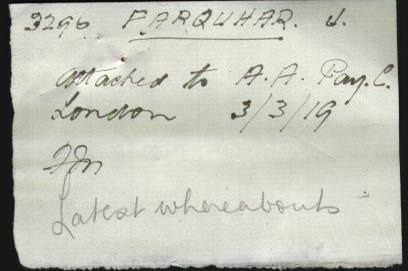 3296 FARQUHAR. J.
attached to A. A. Pay. C.
London 3/3/19
Latest whereabouts